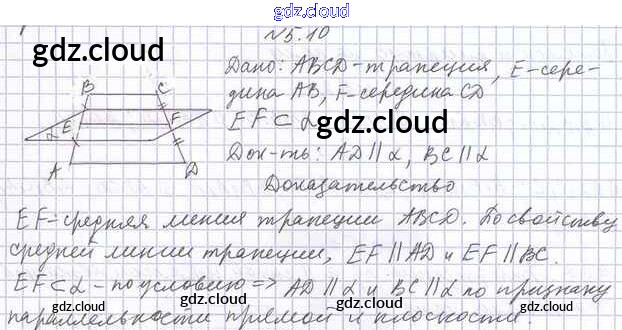 gdz.cloud
№5.10
gdz.cloud
Дано: ABCD - трапеция, E - сере-
дина AB, F - середина CD
EF ⊂ α
gdz.cloud
Док-ть: AD ∥ α, BC ∥ α
Доказательство
B C
E F
α
A D
EF - средняя линия трапеции ABCD. По свойству
средней линии трапеции, EF ∥ AD и EF ∥ BC.
gdz.cloud
EF ⊂ α - по условию => AD ∥ α и BC ∥ α по признаку
параллельности прямой и плоскости.
gdz.cloud gdz.cloud